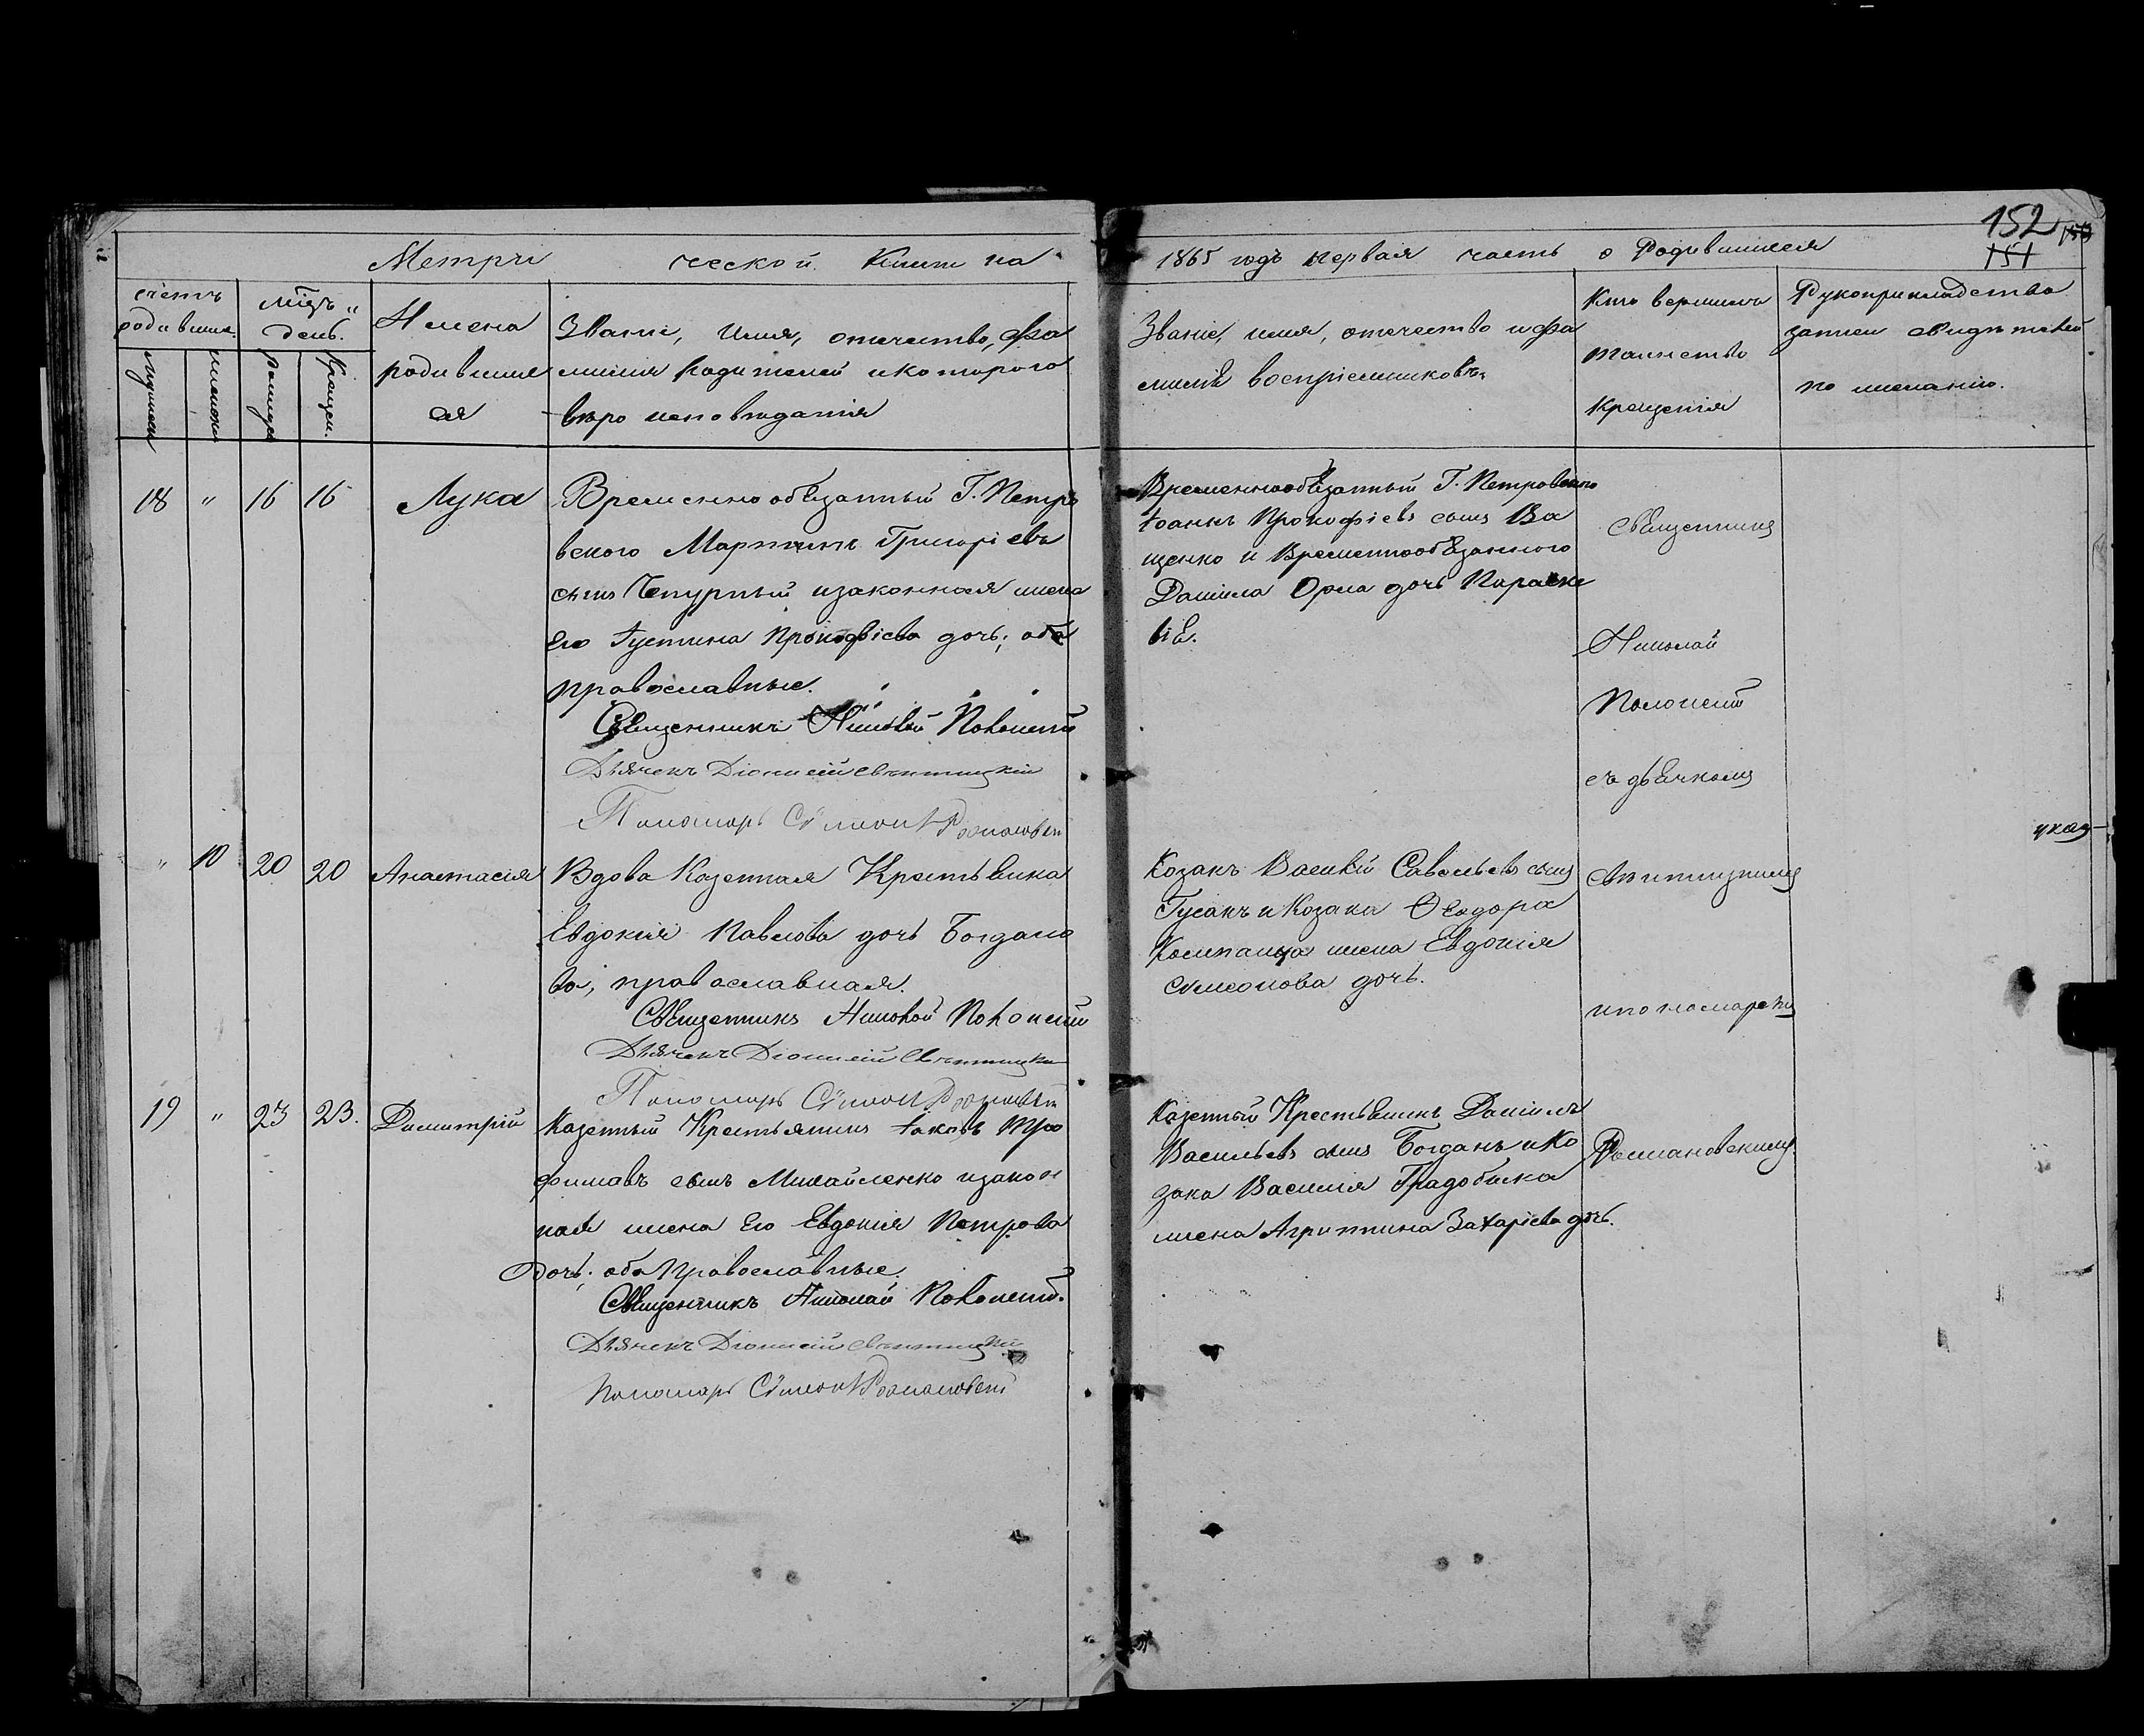 152
151
Метри ческой Книги на
1865 годъ первая часть о Родившихся
счетъ родивших.
мѣсъ „ день.
мужеска
женска
рожден
крещен.
Имена
родивших
ся
Званіе, Имя, отчество, фа
милия Родителей и котораго
вѣро исповѣданія
Званіе, имя, отчество и фа
милія воспріемниковъ.
Кто вершилъ
таинство
Крещенія
Рукоприкладство
записи свидѣтелей
по желанію.
18 " 16 16 Лука
Временно обязанный Г. Петро
вского Мартинъ Григоріевъ
сынъ Чепурный и законная жена
Его Іустина Прокофіева дочь; оба
православные.
Священникъ Николай Полонскій
Дьячекъ Діонисій Свѣнтицкій
Пономарь Сѵмеонъ Романовскій
Временнообязанный Г. Петровского
Іоаннъ Прокофіевъ сынъ Ва
щенко и Временнообязанного
Даніила Орла дочь Параске
вія.
Священникъ
Николай
Полонскій
съ дьячкомъ
" 10 20 20 Анастасія
Вдова Казенная Крестьянка
Евдокія Павлова дочь Богдано
ва, православная.
Священникъ Николай Полонскій
Дьячекъ Діонисій Свѣнтицкій
Пономарь Сѵмеонъ Романовскій
Козакъ Василій Савельевъ сынъ
Гусакъ и Козака Ѳеодора
Компанца жена Евдокія
Сѵмеонова дочь.
Свѣнтицкимъ
и пономаремъ
19 " 23 23. Димитрій
Казенный Крестьянинъ Іаковъ Тро
фимовъ сынъ Михайленко и закон
ная жена Его Евдокія Петрова
дочь; оба православные.
Священникъ Николай Полонскій.
Дьячекъ Діонисій Свѣнтицкій
Пономарь Сѵмеонъ Романовскій
Казенный Крестьянинъ Даніилъ
Васильевъ сынъ Богданъ и Ко
зака Василія Градобика
жена Агриппина Захаріева дочь.
Романовскимъ.